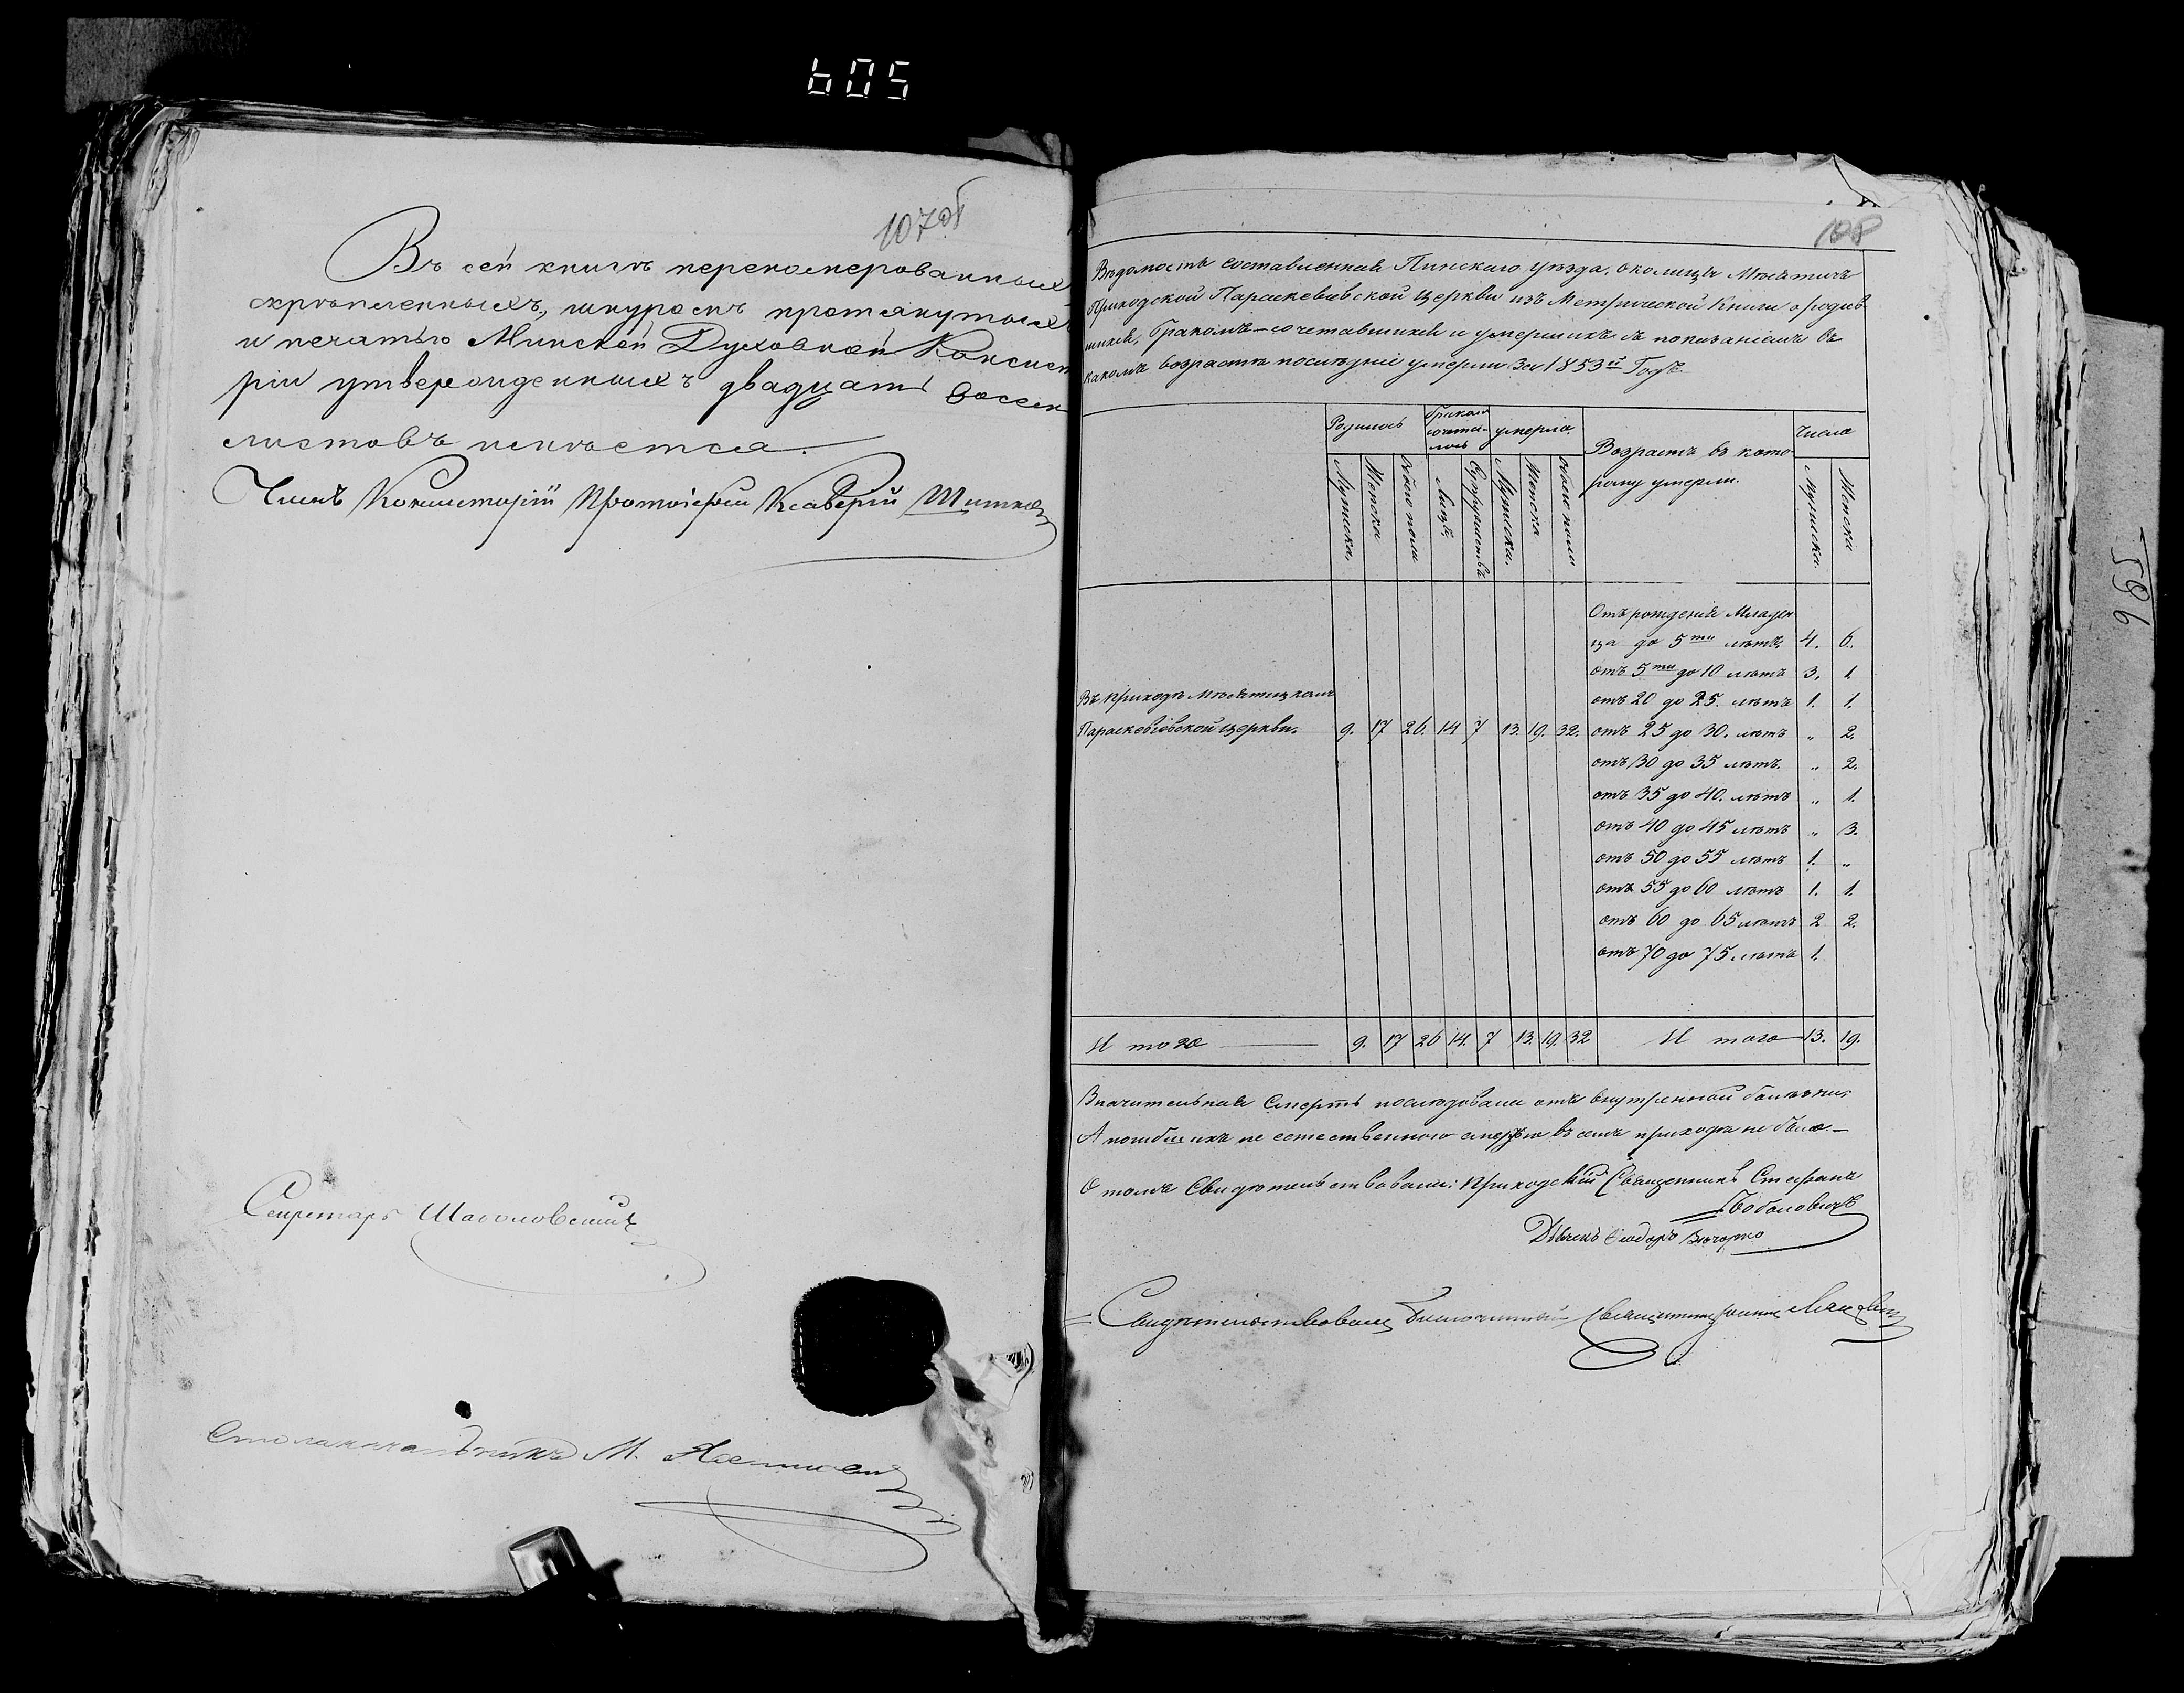 605
107об
Въ сей книгѣ перенумерованныхъ
скрѣпленныхъ, шнуромъ протянутыхъ
и печатью Минской Духовной Консисто
ріи утвержденныхъ двадцать восемь
листовъ имѣется.
Членъ Консисторіи Протоіерей Ксаверій
Секретарь
Столоначальникъ М.
108
Вѣдомость составленная Пинскаго уѣзда, околицы Мѣсятичъ
Приходской Параскевіевской церкви изъ Метрической Книги о родив
шихся, бракомъ-сочетавшихся и умершихъ съ показаніемъ въ
какомъ возрастѣ послѣдніе умерли За 1853й Годъ.
Родилось
Бракомъ сочета-лось
умерло.
Возрастъ въ кото-
рому умерли.
Числа
Мужеска.
Женска
Обоего пола
Лицъ
Супружествъ
Мужеска.
Женска
Обоего пола
Мужеска.
Женска
Отъ рожденія Младен
ца до 5ти лѣтъ 4. 6.
отъ 5ти до 10 лѣтъ 3. 1
отъ 20 до 25. лѣтъ 1. 1.
Въ приходѣ Мѣсятицкой
Параскевіевской церкви. 9. 17 26. 14 7 13. 19. 32. отъ 25 до 30. лѣтъ " 2.
отъ 30 до 35 лѣтъ. " 2.
отъ 35 до 40. лѣтъ " 1.
отъ 40 до 45 лѣтъ " 3.
отъ 50 до 55 лѣтъ 1. "
отъ 55 до 60 лѣтъ 1. 1.
отъ 60 до 65 лѣтъ 2 2.
отъ 70 до 75 лѣтъ 1.
И того 9. 17 26 14. 7 13. 19. 32 И того 13. 19.
Значительная Смерть послѣдовала отъ внутренной болѣзни,
А погибшихъ не естественною смертью въ семъ приходѣ не было.—
О томъ Свидѣтельствовали: Приходскій Священникъ Стефанъ
Дьячекъ Ѳеодоръ
Свидѣтельствовалъ Благочинный Священникъ
596